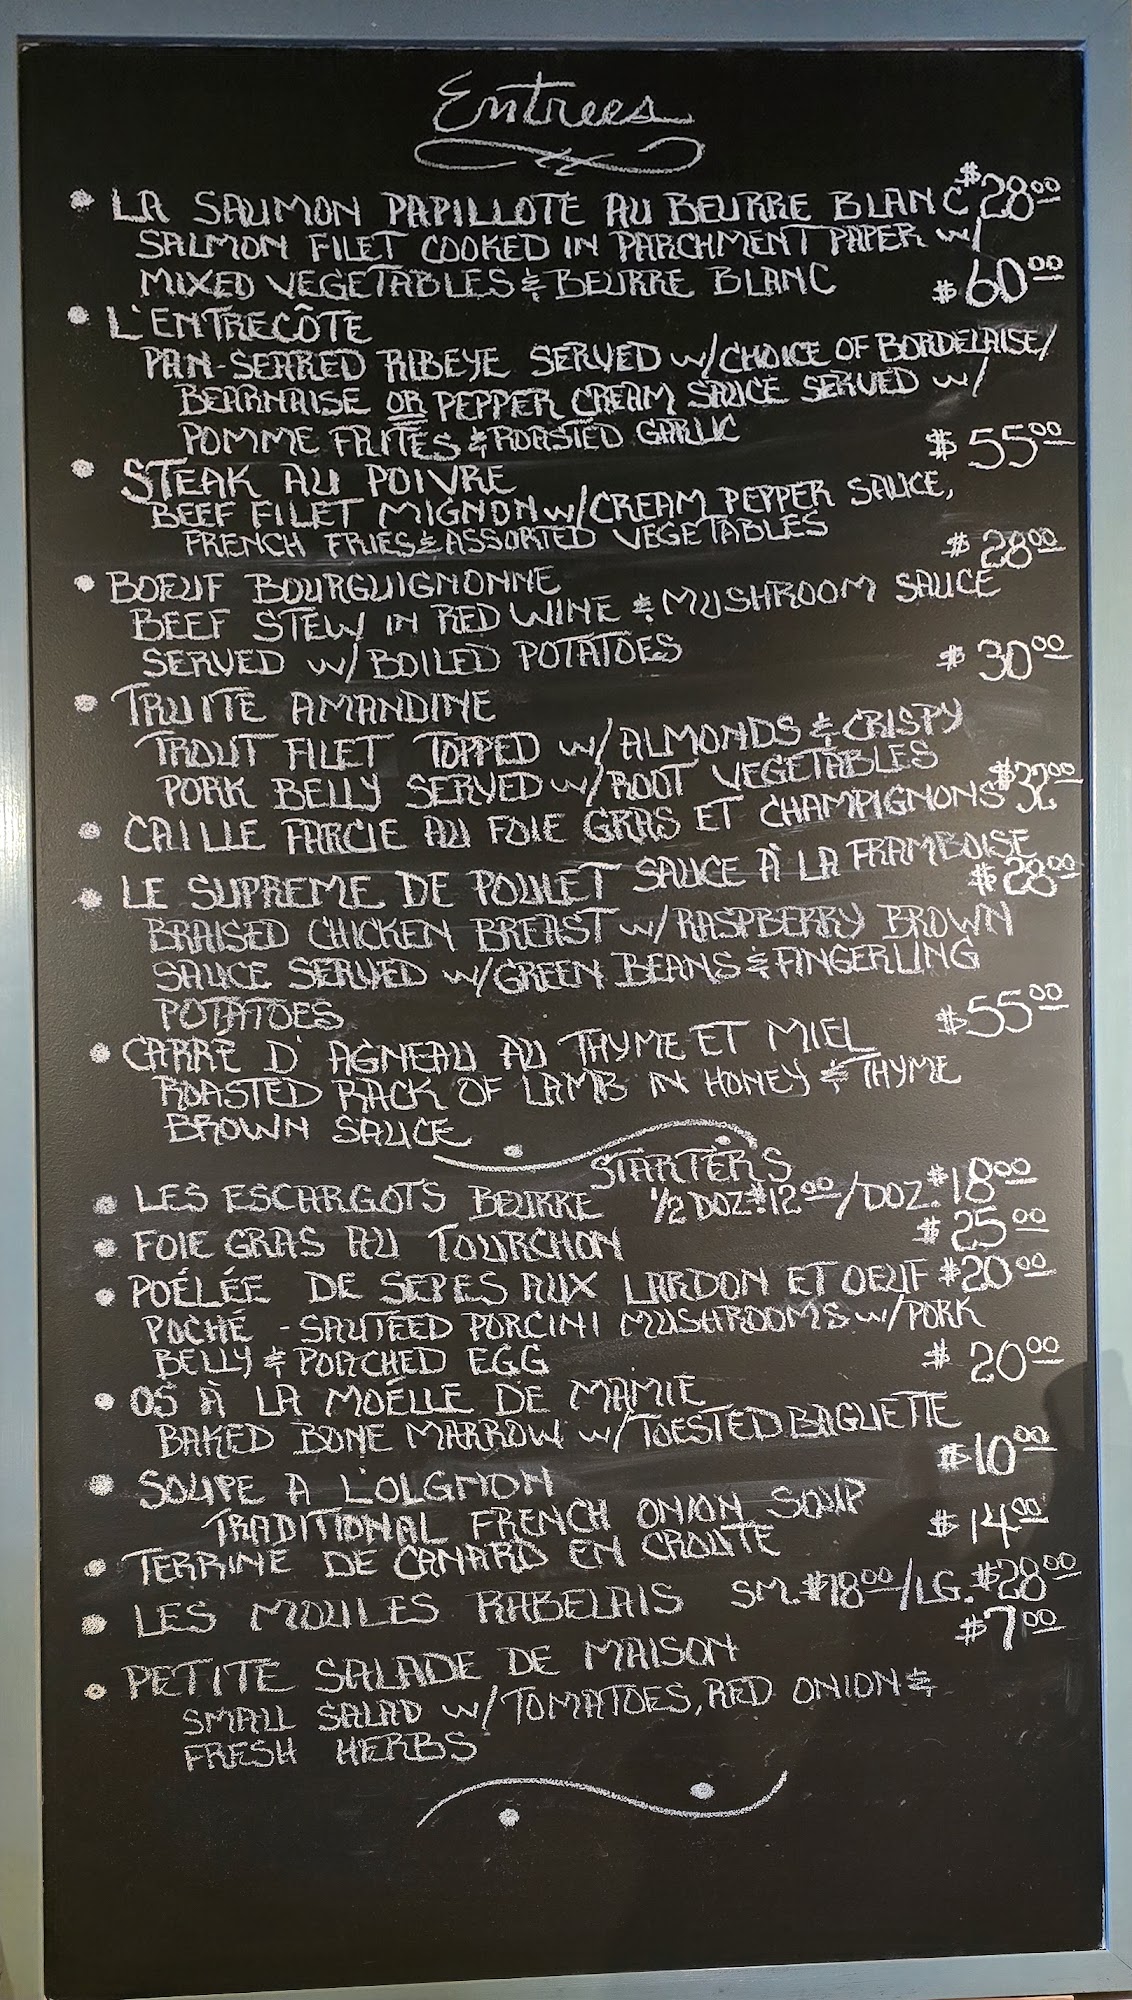 Entrees
• LA SAUMON PAPILLOTE AU BEURRE BLANC $28.00
SALMON FILET COOKED IN PARCHMENT PAPER w/
MIXED VEGETABLES & BEURRE BLANC
$60.00
• L'ENTRECÔTE
PAN-SEARED RIBEYE SERVED w/CHOICE OF BORDELAISE/
BEARNAISE OR PEPPER CREAM SAUCE SERVED w/
POMME FRITES & ROASTED GARLIC
$55.00
• STEAK AU POIVRE
BEEF FILET MIGNON w/CREAM PEPPER SAUCE,
FRENCH FRIES & ASSORTED VEGETABLES
$28.00
• BOEUF BOURGUIGNONNE
BEEF STEW IN RED WINE & MUSHROOM SAUCE
SERVED w/ BOILED POTATOES
$30.00
• TRUITE AMANDINE
TROUT FILET TOPPED w/ALMONDS & CRISPY
PORK BELLY SERVED w/ROOT VEGETABLES
• CAILLE FARCIE AU FOIE GRAS ET CHAMPIGNONS
• LE SUPREME DE POULET SAUCE À LA FRAMBOISE
$28.00
BRAISED CHICKEN BREAST w/RASPBERRY BROWN
SAUCE SERVED w/GREEN BEANS & FINGERLING
POTATOES
$55.00
• CARRÉ D'AGNEAU AU THYME ET MIEL
ROASTED RACK OF LAMB IN HONEY & THYME
BROWN SAUCE
STARTERS
• LES ESCARGOTS BEURRE 1/2 DOZ. $12.00/DOZ. $18.00
• FOIE GRAS AU TOURCHON $25.00
• POÉLÉE DE SEPES AUX LARDON ET OEUF $20.00
POCHÉ - SAUTEED PORCINI MUSHROOMS w/PORK
BELLY & POACHED EGG
$20.00
• OS À LA MOÉLLE DE MAMIE
BAKED BONE MARROW w/TOESTED BAGUETTE
$10.00
• SOUPE A L'OIGNON
TRADITIONAL FRENCH ONION SOUP
• TERRINE DE CANARD EN CROUTE $14.00
• LES MOULES RABELAIS SM. $18.00/LG. $28.00
$7.00
• PETITE SALADE DE MAISON
SMALL SALAD w/TOMATOES, RED ONION &
FRESH HERBS